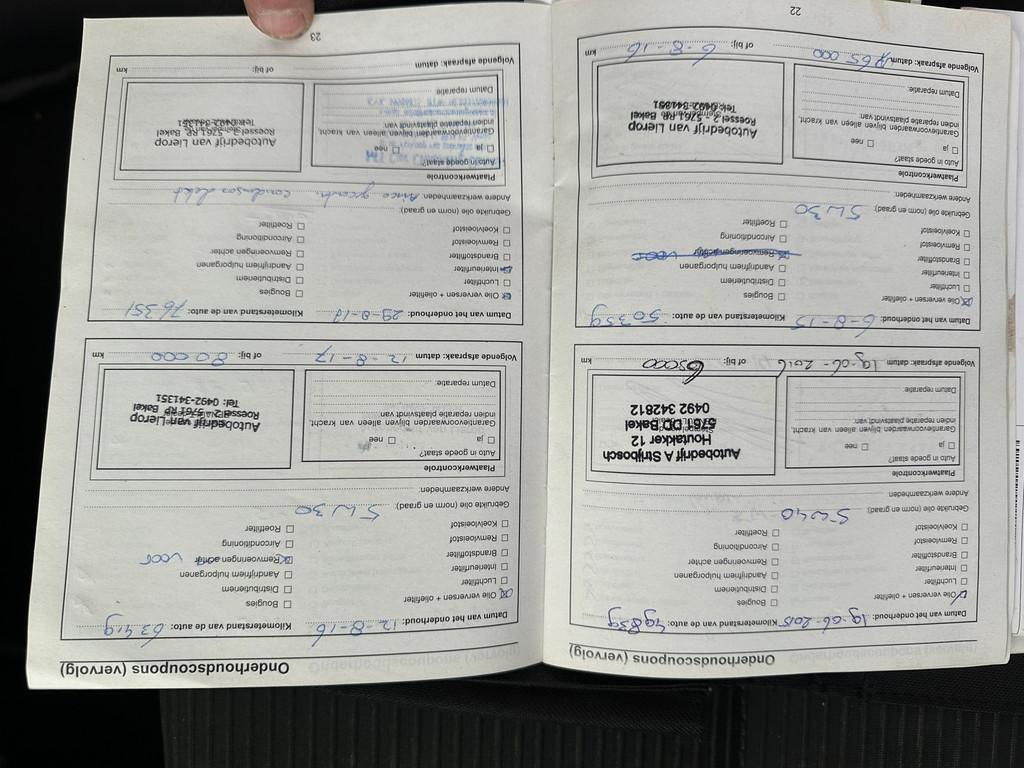 Onderhoudscoupons (vervolg)
Datum van het onderhoud: 19-06-2015 Kilometerstand van de auto: 49839
Olie verversen + oliefilter
Luchtfilter
Interieurfilter
Brandstoffilter
Remvloeistof
Koelvloeistof
Bougies
Distributieriem
Aandrijfriem hulporganen
Remvoeringen achter
Airconditioning
Roetfilter
Gebruikte olie (norm en graad): 5W40
Andere werkzaamheden:
Plaatwerkcontrole
Auto in goede staat?
ja nee
Garantievoorwaarden blijven alleen van kracht,
indien reparatie plaatsvindt van:
Datum reparatie:
Autobedrijf A Strijbosch
Houtakker 12
5761 DD Bakel
0492 342812
Volgende afspraak: datum 19-06-2016 of bij: 65000 km
Datum van het onderhoud: 6-8-15 Kilometerstand van de auto: 50359
Olie verversen + oliefilter
Luchtfilter
Interieurfilter
Brandstoffilter
Remvloeistof
Koelvloeistof
Bougies
Distributieriem
Aandrijfriem hulporganen
Remvoeringen achter voor
Airconditioning
Roetfilter
Gebruikte olie (norm en graad): 5W30
Andere werkzaamheden:
Plaatwerkcontrole
Auto in goede staat?
ja nee
Garantievoorwaarden blijven alleen van kracht,
indien reparatie plaatsvindt van:
Datum reparatie:
Autobedrijf van Lierop
Roessel 2 - 5761 RP Bakel
Tel: 0492-341351
Volgende afspraak: datum 65.000 of bij: 6-8-16 km
22
Onderhoudscoupons (vervolg)
Datum van het onderhoud: 12-8-16 Kilometerstand van de auto: 63419
Olie verversen + oliefilter
Luchtfilter
Interieurfilter
Brandstoffilter
Remvloeistof
Koelvloeistof
Bougies
Distributieriem
Aandrijfriem hulporganen
Remvoeringen achter voor
Airconditioning
Roetfilter
Gebruikte olie (norm en graad): 5W30
Andere werkzaamheden:
Plaatwerkcontrole
Auto in goede staat?
ja nee
Garantievoorwaarden blijven alleen van kracht,
indien reparatie plaatsvindt van:
Datum reparatie:
Autobedrijf van Lierop
Roessel 2 - 5761 RP Bakel
Tel: 0492-341351
Volgende afspraak: datum 12-8-17 of bij: 80000 km
Datum van het onderhoud: 29-8-17 Kilometerstand van de auto: 76351
Olie verversen + oliefilter
Luchtfilter
Interieurfilter
Brandstoffilter
Remvloeistof
Koelvloeistof
Bougies
Distributieriem
Aandrijfriem hulporganen
Remvoeringen achter
Airconditioning
Roetfilter
Gebruikte olie (norm en graad):
Andere werkzaamheden: Airco gecontr. condensor lekt
Plaatwerkcontrole
Auto in goede staat?
ja nee
Garantievoorwaarden blijven alleen van kracht,
indien reparatie plaatsvindt van:
Datum reparatie:
Autobedrijf van Lierop
Roessel 2 - 5761 RP Bakel
Tel: 0492-341351
Volgende afspraak: datum of bij: km
23